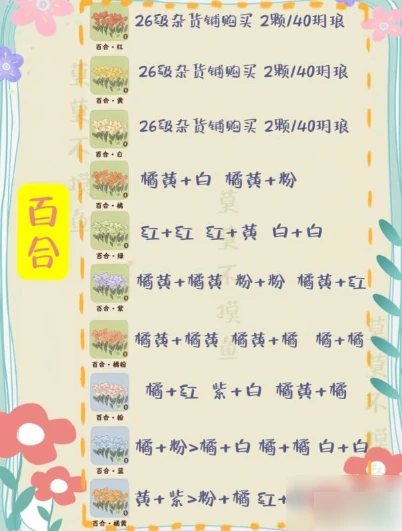 百合
26级杂货铺购买 2颗/40玥琅
百合·红
26级杂货铺购买 2颗/40玥琅
百合·黄
26级杂货铺购买 2颗/40玥琅
百合·白
橘黄+白 橘黄+粉
百合·橘
红+红 红+黄 白+白
百合·绿
橘黄+橘黄 粉+粉 橘黄+红
百合·紫
橘黄+橘黄 橘黄+橘 橘+橘
百合·橘粉
橘+红 紫+白 橘黄+橘
百合·粉
橘+粉>橘+白 橘+橘 白+白
百合·蓝
黄+紫>粉+橘 红+
百合·橘黄
莫莫不摸鱼
莫莫不摸鱼
莫莫不摸